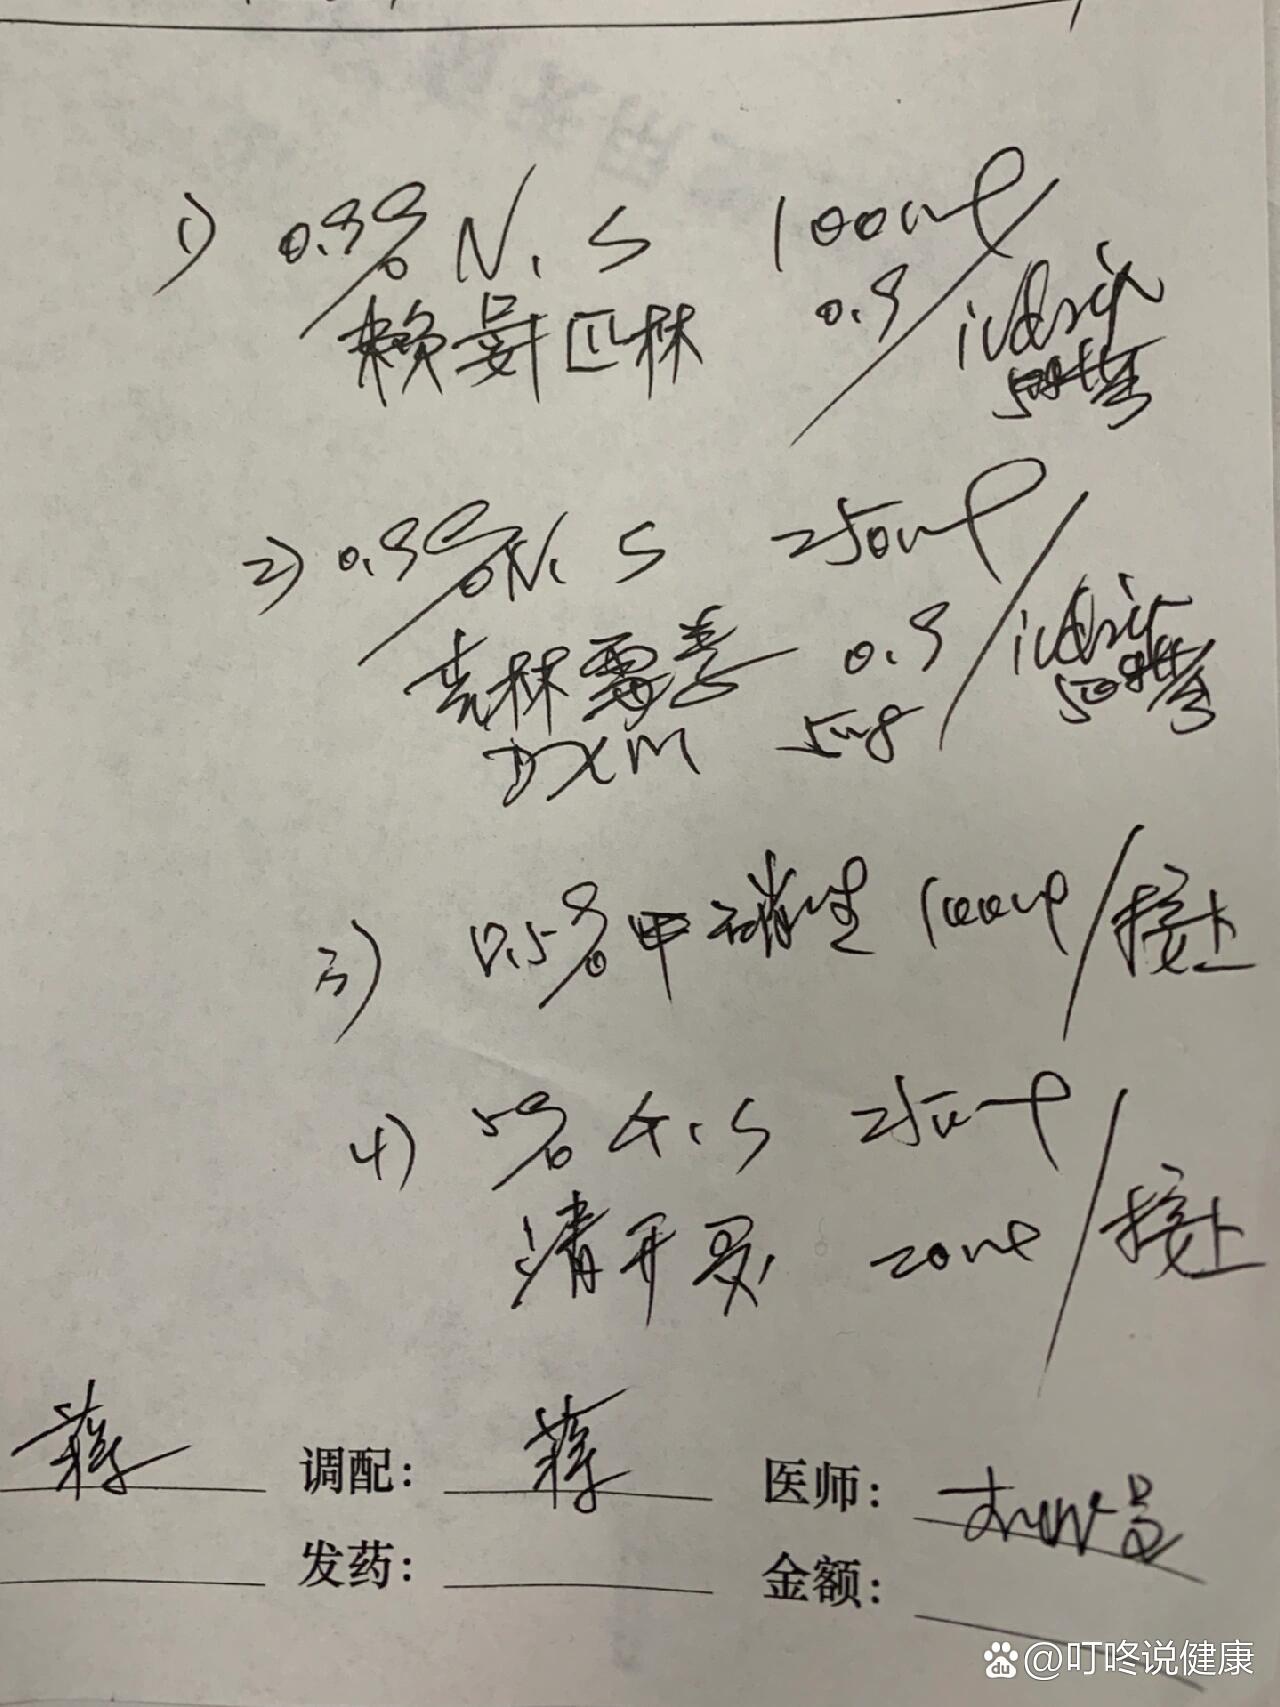 1) 0.9% N.S 100ml
赖氨匹林 0.9 ivdrip
50滴/分
2) 0.9% N.S 250ml
克林霉素 0.9 ivdrip
DXM 5mg 50滴/分
3) 0.5% 甲硝唑 100ml 接上
4) 5% G.S 250ml
清开灵 20ml 接上
蒋 调配: 蒋 医师:
发药: 金额:
@叮咚说健康